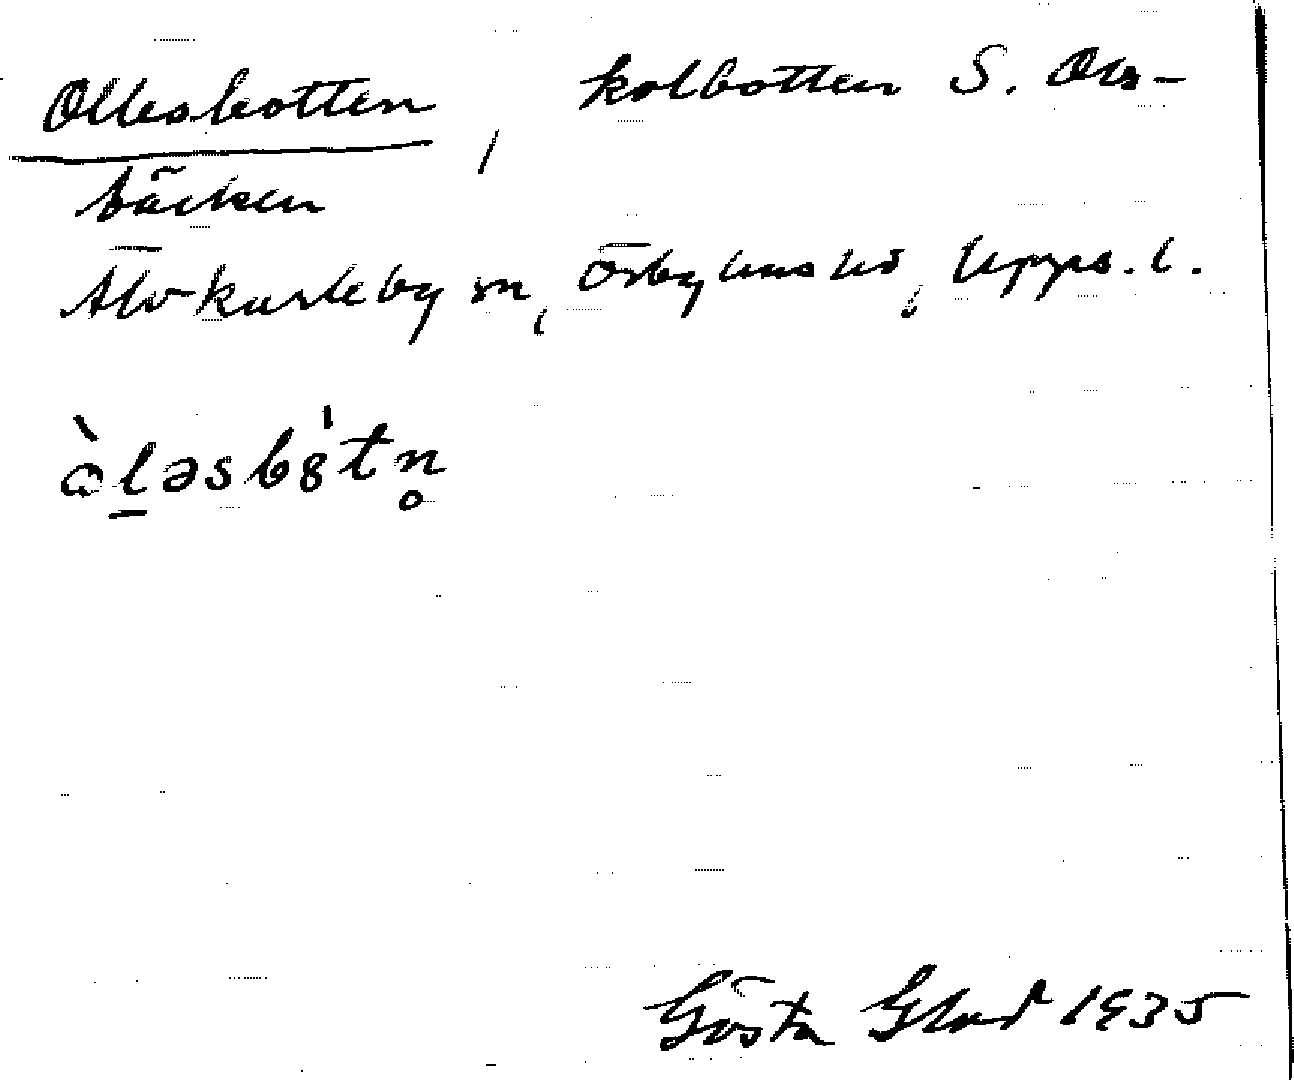 Ollesbotten, kolbotten S. Ols-
bäcken
Älvkarleby sn, Örbyhus hd, Upps. l.
òl̠əsbȯ̀tn̥
Gösta Glad 1935